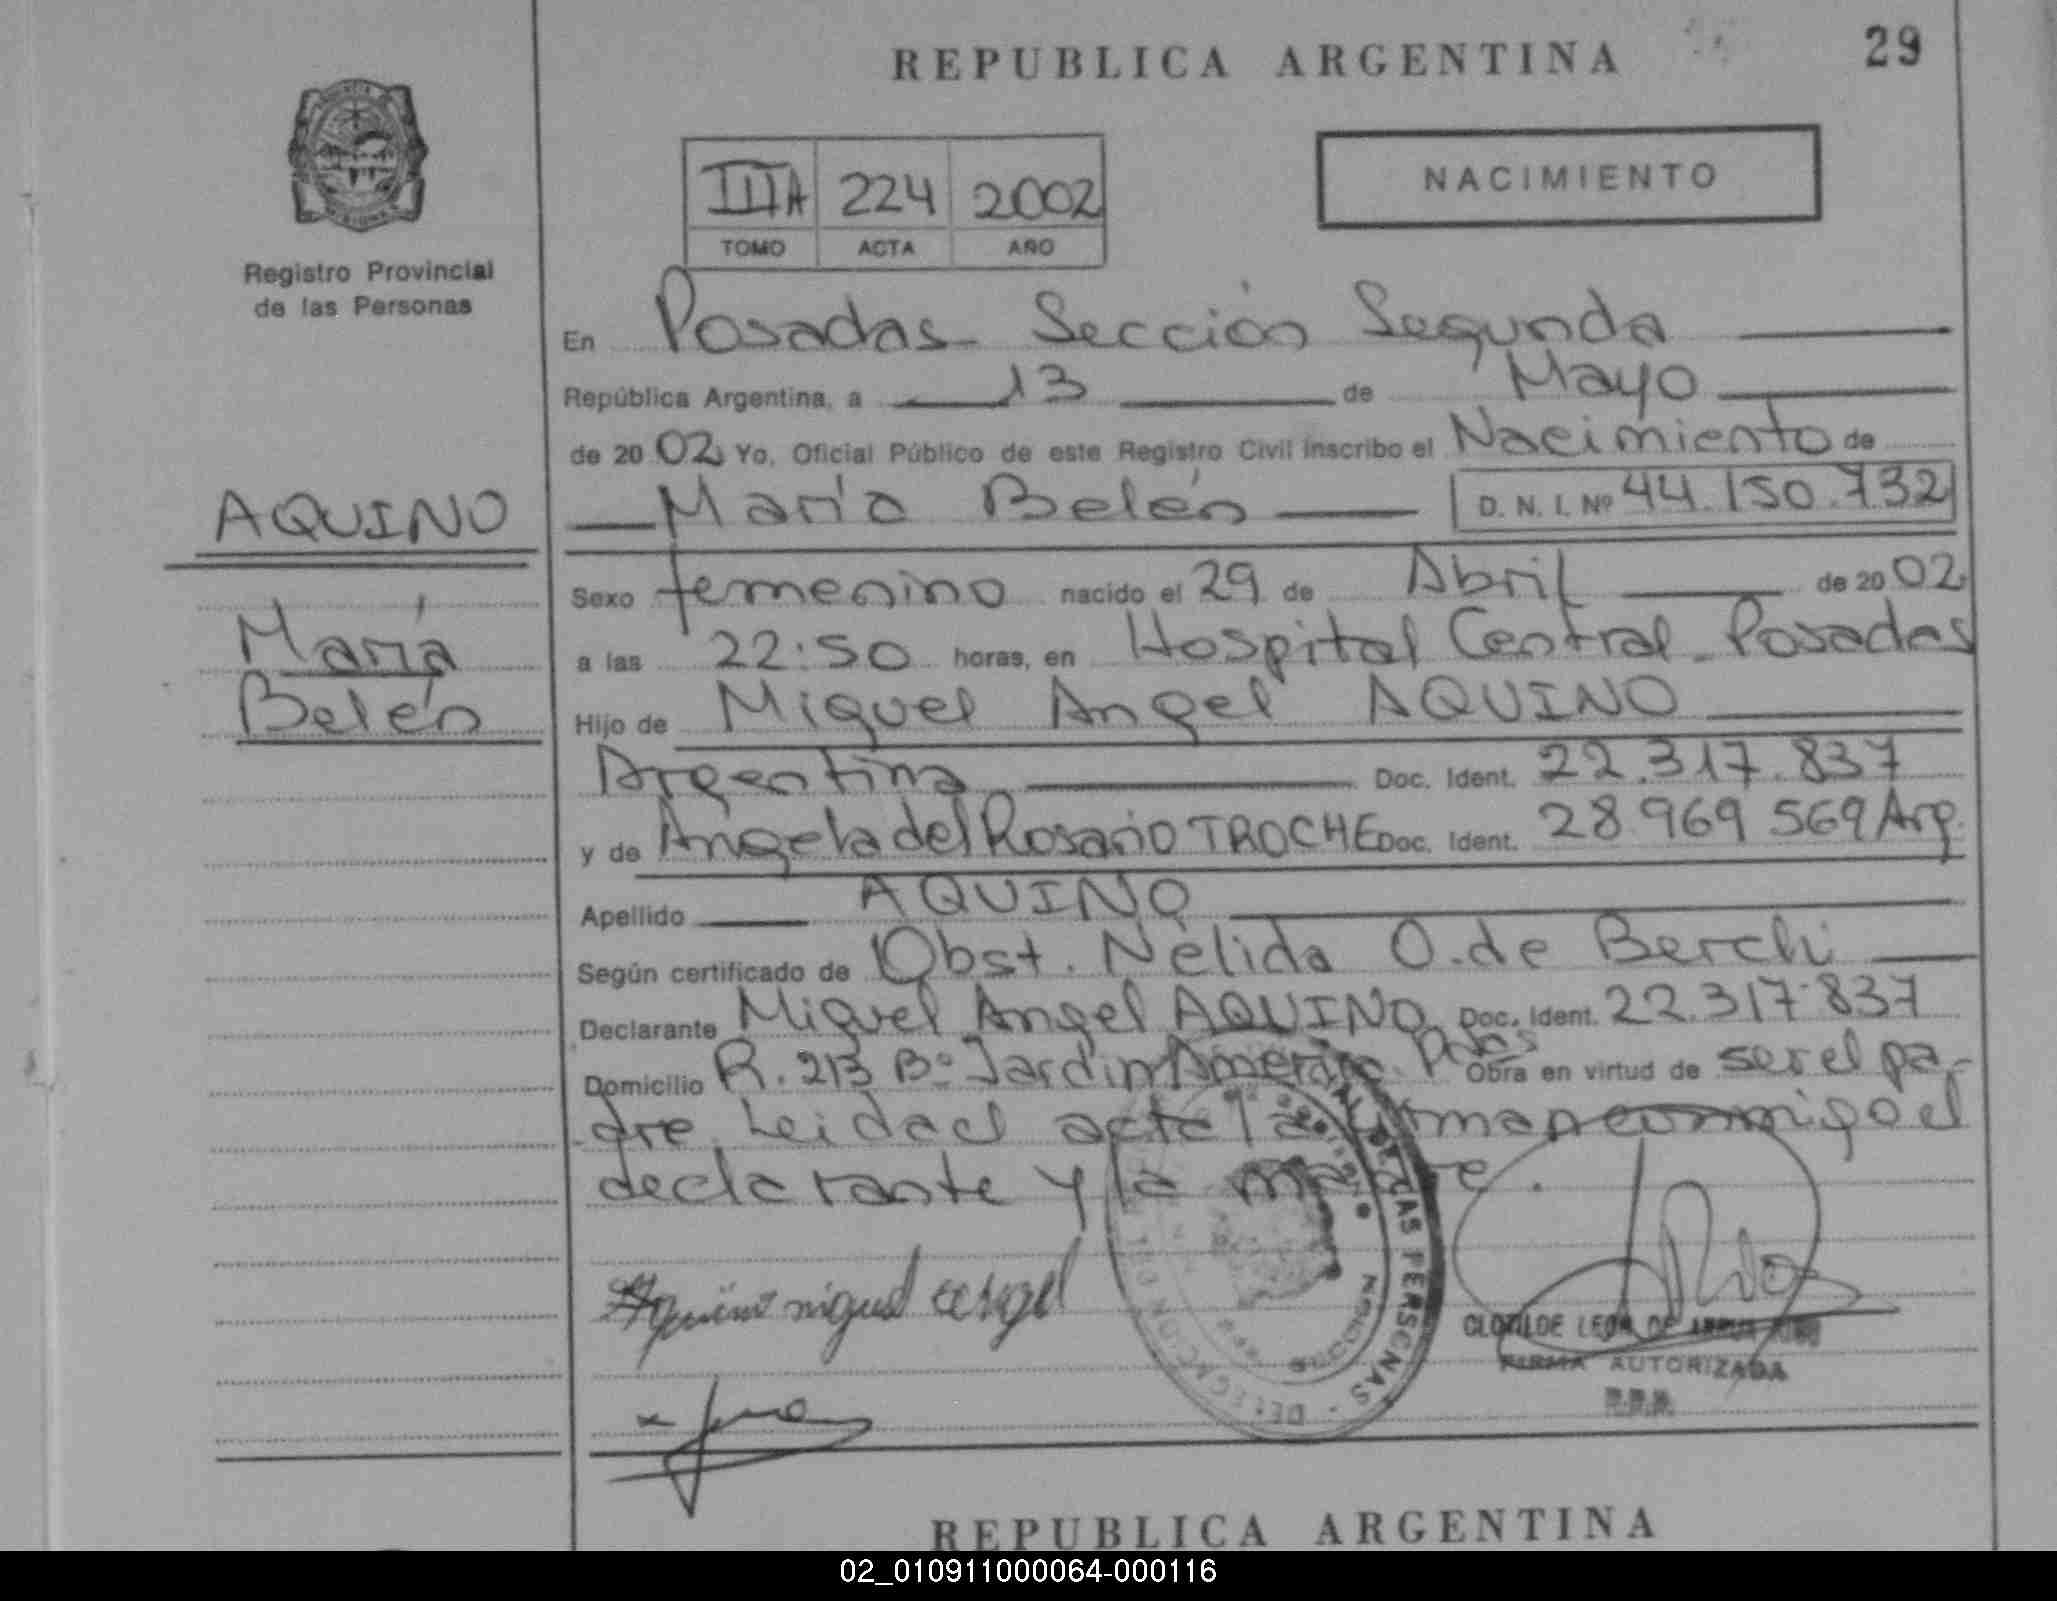 REPUBLICA ARGENTINA
29
NACIMIENTO
IIIA 224 2002
TOMO ACTA AÑO
Registro Provincial
de las Personas
En Posadas - Sección Segunda
República Argentina, a 13 de Mayo
de 2002 Yo, Oficial Público de este Registro Civil inscribo el Nacimiento de
María Belén D. N. I. Nº 44.150.732
AQUINO
María
Belén
Sexo femenino nacido el 29 de Abril de 2002
a las 22:50 horas, en Hospital Central - Posadas
Hijo de Miguel Angel AQUINO
Argentina Doc. Ident. 22.317.837
y de Angela del Rosario TROCHE Doc. Ident. 28 969 569 Arg.
Apellido AQUINO
Según certificado de Obst. Nélida O. de Berchi
Declarante Miguel Angel AQUINO Doc. Ident. 22.317.837
Domicilio R. 213 Bº Jardin America Pdas Obra en virtud de ser el pa-
dre. Leida el acta la firman conmigo el
declarante y la madre.
Aquino miguel angel
CLOTILDE LEON DE
FIRMA AUTORIZADA
REPUBLICA ARGENTINA
02_010911000064-000116